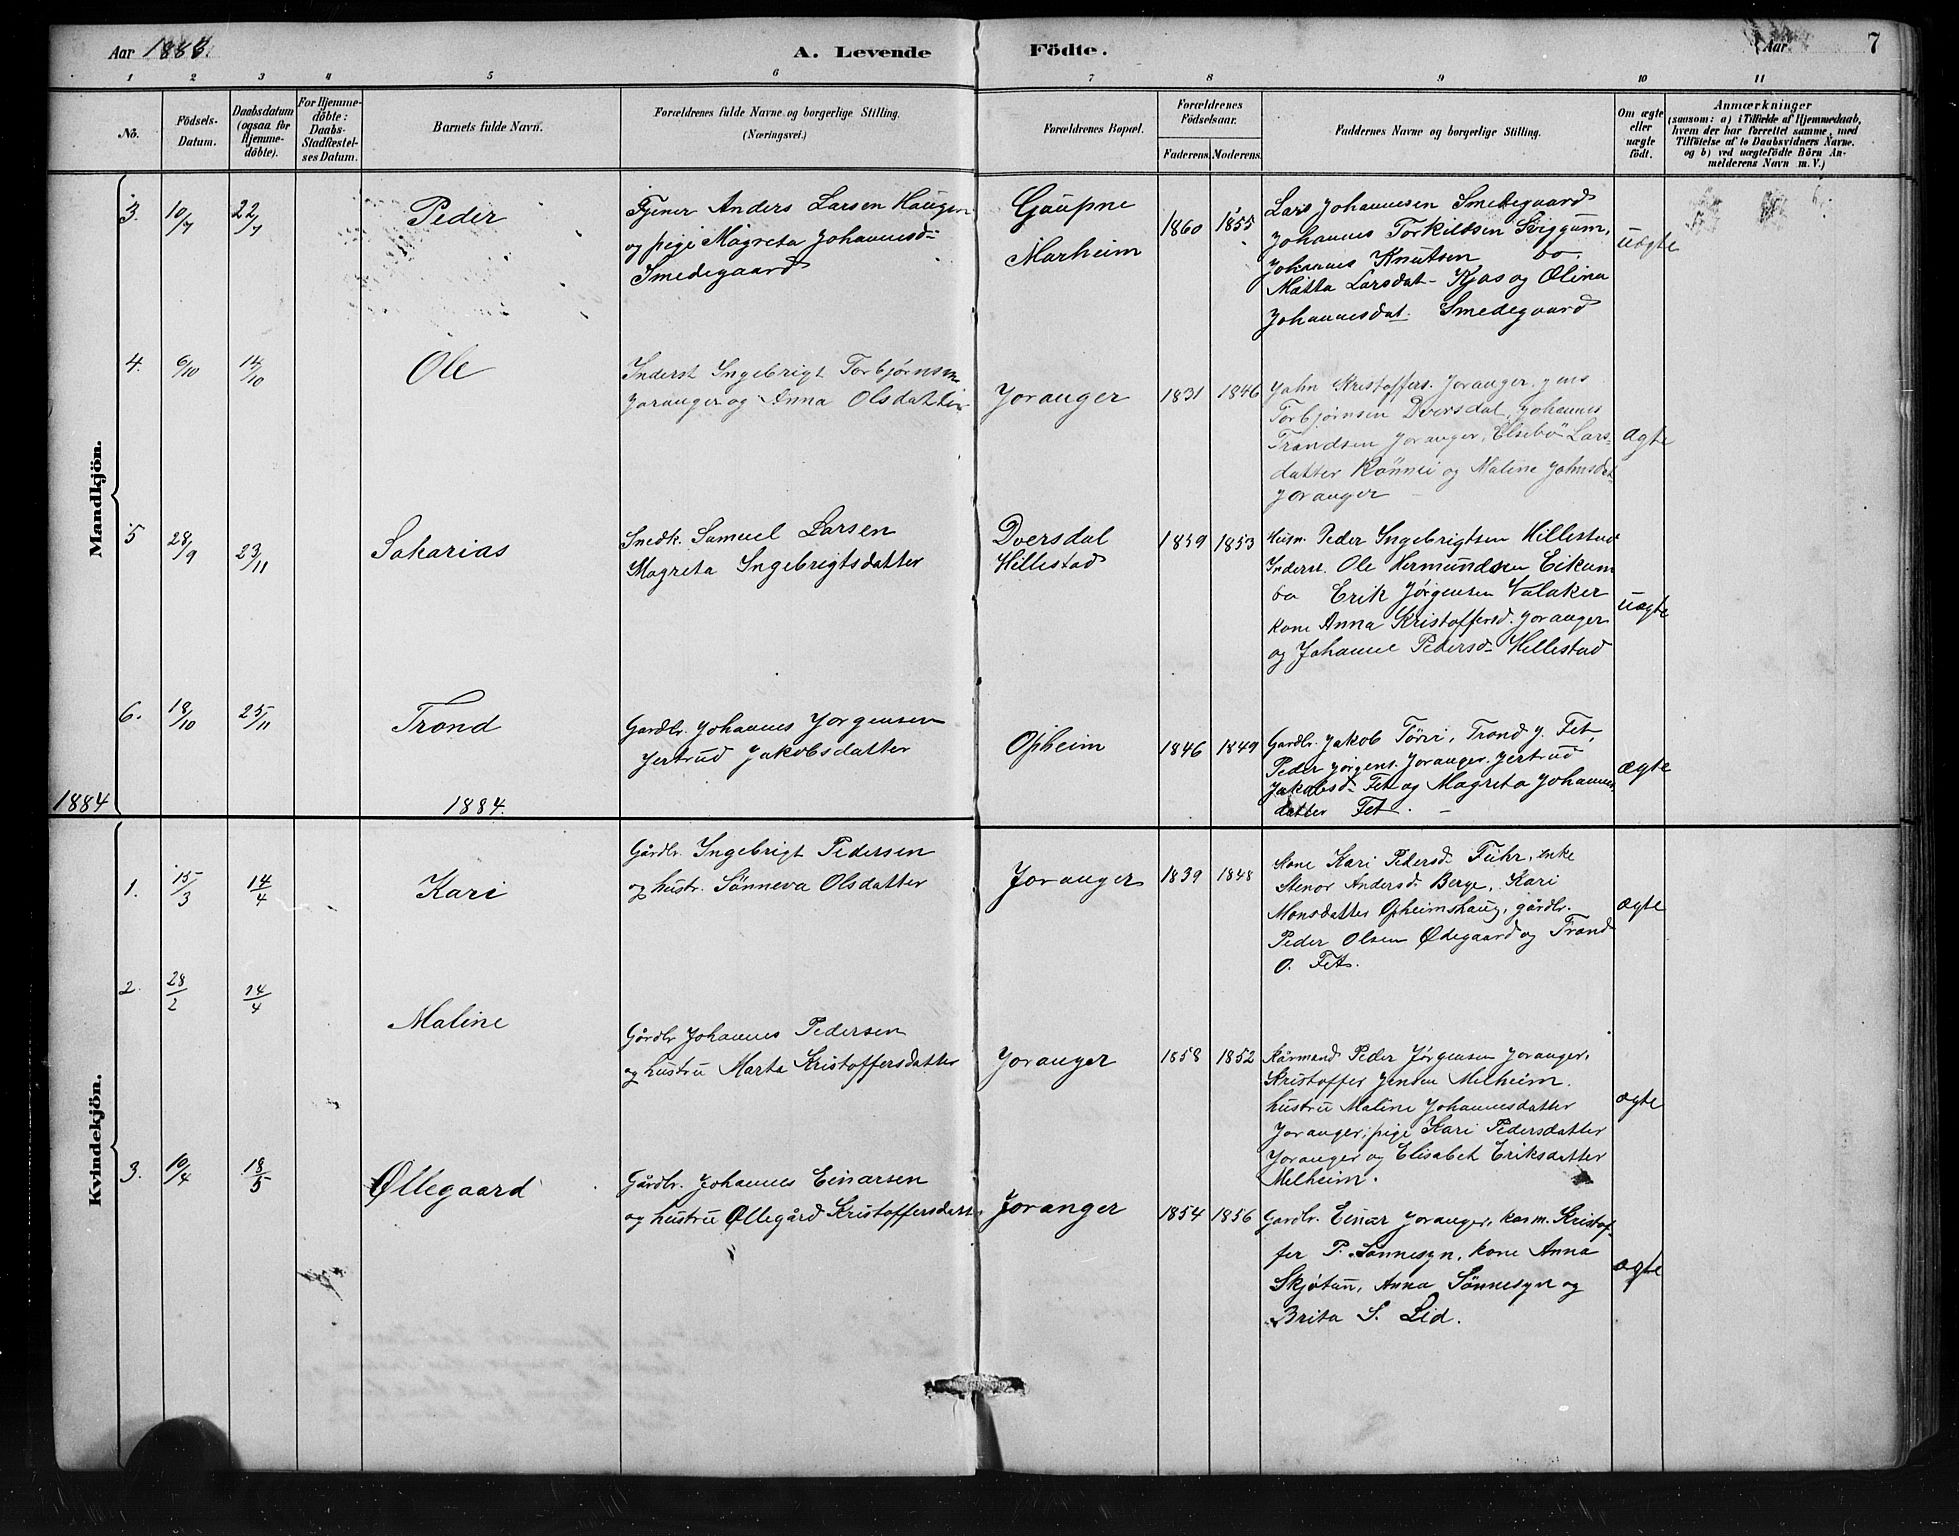 Aar 1883. A. Levende Födte. Aar 7
1 2 3 4 5 6 7 8 9 10 11
No.
Födsels-Datum.
Daabsdatum (ogsaa for Hjemme-döbte).
For Hjemme-döbte: Daabs-Stadfæstel-ses Datum.
Barnets fulde Navn.
Forældrenes fulde Navne og borgerlige Stilling.
(Næringsvei.)
Forældrenes Bopæl.
Forældrenes Födselsaar.
Faderens. Moderens.
Faddernes Navne og borgerlige Stilling.
Om ægte eller uægte födt.
Anmærkninger
(saasom: a) i Tilfælde af Hjemmedaab,
hvem der har forrettet samme, med
Tilföielse af to Daabsvidners Navne.
og b) ved uægtefödte Börn An-
melderens Navn m. V.)
Mandkjön.
3. 10/7 22/7 Peder
Tjener Anders Larsen Haugen
og pige Mågreta Johannesd-
Smedegaard
Gaupne
Marheim
1860 1855
Lars Johannesen Smedegaard
Johannes Torkildsen
Johannes Knutsen bo.
Matta Larsdat- Kjos og Olina
Johannesdat. Smedegaard
uægte
4. 6/10 14/10 Ole
Inderst Ingebrigt Torbjørnsen
Joranger og Anna Olsdatter
Joranger
1831 1846
Jahn Kristoffers. Joranger. Jens
Torbjørnsen Dversdal, Johannes
Trondsen Joranger, Elsebö Lars-
datter Rönnei og Maline Johnsdat-
Joranger
ægte
5 28/9 23/11 Sakarias
Snedk. Samuel Larsen
Magreta Ingebrigtsdatter
Dversdal
Hillestad
1859 1853
Husm. Peder Ingebrigtsen Hillestad
Inderst. Ole Hermundsen Eikum
bo Erik Jørgensen Valaker
kone Anna Kristoffersd. Joranger
og Johanne Pedersd- Hillestad
uægte
6. 18/10 25/11 Trond
Gardbr. Johannes Jorgensen
Jertrud Jakobsdatter
Opheim
1846 1849
Gardbr. Jakob Törvi, Trond J. Fet,
Peder Jörgens. Joranger. Jertrud
Jakobsd- Fet og Magreta Johannes
datter Fet. -
ægte
1884 1884.
Kvindekjön.
1. 15/3 14/4 Kari
Gårdbr. Ingebrigt Pedersen
og hustr. Sönneva Olsdatter
Joranger
1839 1848
Kone Kari Pedersd- Fuhr, enke
Stenor Andersd- Berge, Kari
Monsdatter Opheimshaug, gårdbr.
Peder Olsen Ødegaard og Trond
O. Fet.
ægte
2. 28/2 14/4 Maline
Gårdbr Johannes Pedersen
og hustru Marta Kristoffersdatter
Joranger
1858 1852
Kårmand Peder Jørgensen Joranger,
Kristoffer Jensen Melheim.
hustru Maline Johannesdatter
Joranger, pige Kari Pedersdatter
Joranger og Elisabet Eriksdatter
Melheim.
ægte
3. 10/4 18/5 Øllegaard
Gårdbr. Johannes Einarsen
og hustru Øllegård Kristoffersdatt.
Joranger
1854 1856
Gardbr. Einar Joranger, karm. Kristof-
fer P. Sönnesyn, kone Anna
Skjötun, Anna Sönnesyn og
Brita S. Lid.
ægte